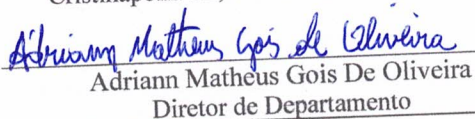 Adriann Matheus Gois de Oliveira
Adriann Matheus Gois De Oliveira
Diretor de Departamento